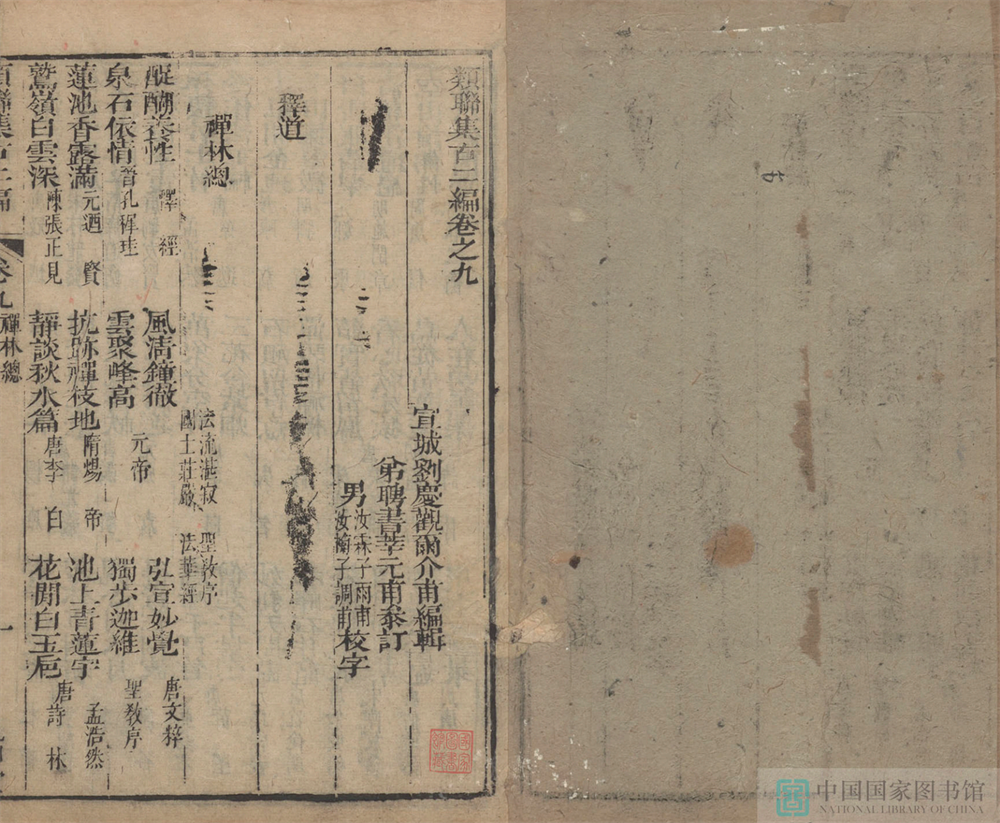 類聯集古二編卷之九
宣城劉慶觀爾介甫編輯
弟聘書莘元甫叅訂
男
汝霖子雨甫
汝楫子調甫
校字
釋道
禪林總
醍醐養性 釋經
風清鐘徹
法流湛寂 聖教序
國土莊嚴 法華經
弘宣妙覺 唐文粹
泉石依情 晉孔稚珪
雲聚峰高 元帝
獨步迦維 聖教序
蓮池香露滿 元迺賢
抗跡禪枝地 隋煬帝
池上青蓮宇 孟浩然
鷲嶺白雲深 陳張正見
靜談秋水篇 唐李白
花閒白玉卮 唐詩林
類聯集古二編
卷九
禪林總
一
中国国家图书馆
NATIONAL LIBRARY OF CHINA